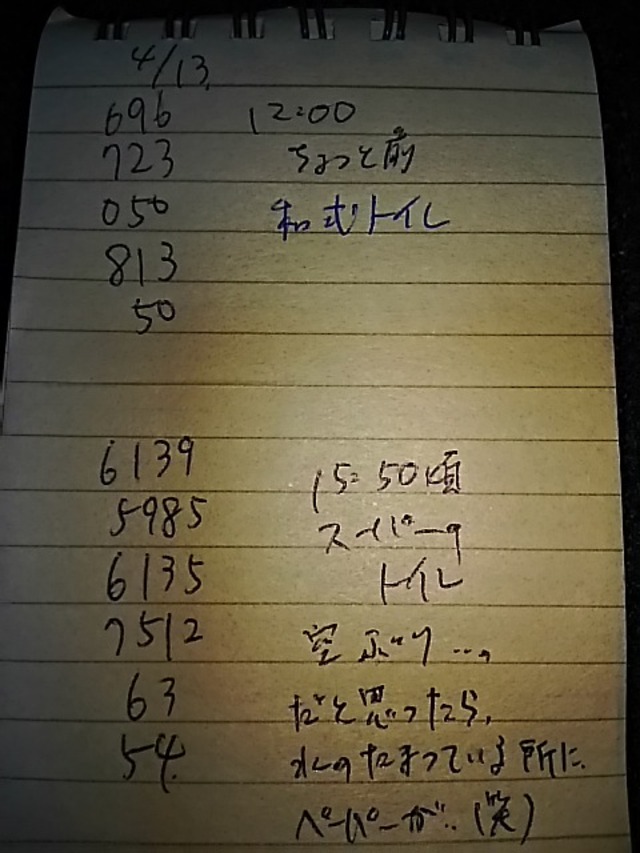 4/13.
696 12:00
723 ちょっと前
050 和式トイレ
813
50
6139 15:50頃
5985 スーパーの
6135 トイレ
7512 空ぶり…。
63 だと思ったら、
54. 水のたまっている所に、
ペーパーが‥(笑)